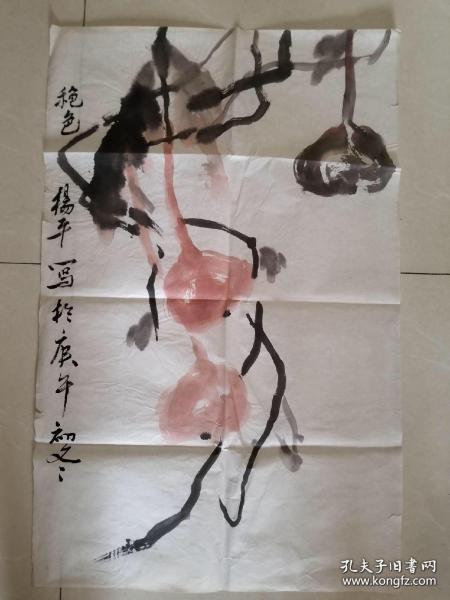 秋色 楊平 写於庚午初冬
孔夫子旧书网
www.kongfz.com